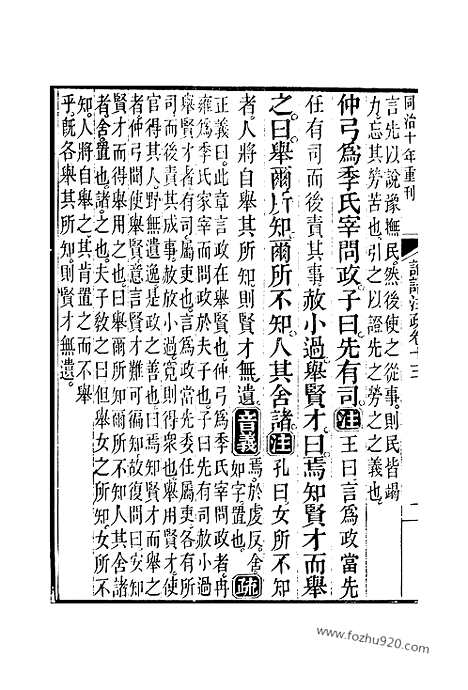 同治十年重刊
論語注疏卷十三
二
言先以說豫撫民。然後使之從事。則民皆竭
力忘其勞苦也。引之以證先之勞之之義也。
仲弓爲季氏宰問政。子曰。先有司。注王曰。言爲政當先
任有司而後責其事。赦小過。舉賢才。曰。焉知賢才而舉
之。曰。舉爾所知。爾所不知。人其舍諸。注孔曰。女所不知
者。人將自舉其所知。則賢才無遺。音義焉。於虔反。舍。
如字。置也。疏
正義曰。此章言政在舉賢也。仲弓爲季氏宰問政者。冉
雍爲季氏家宰而問政於夫子也。子曰先有司赦小過
舉賢才者。有司。屬吏也。言爲政當先委任屬吏。各有所
司。而後責其成事。赦放小過。寬則得衆也。舉用賢才。使
官得其人。野無遺逸。是政之善也。曰焉知賢才而舉之
者。仲弓聞使舉賢。意言賢才難可徧知。故復問曰。安知
賢才而得舉用之也。曰舉爾所知爾所不知人其舍諸
者。舍。置也。諸。之也。夫子教之曰。但舉女之所知。女所不
知。人將自舉之。其肯置之而不舉
乎。既各舉其所知。則賢才無遺。
www.fozhu920.com